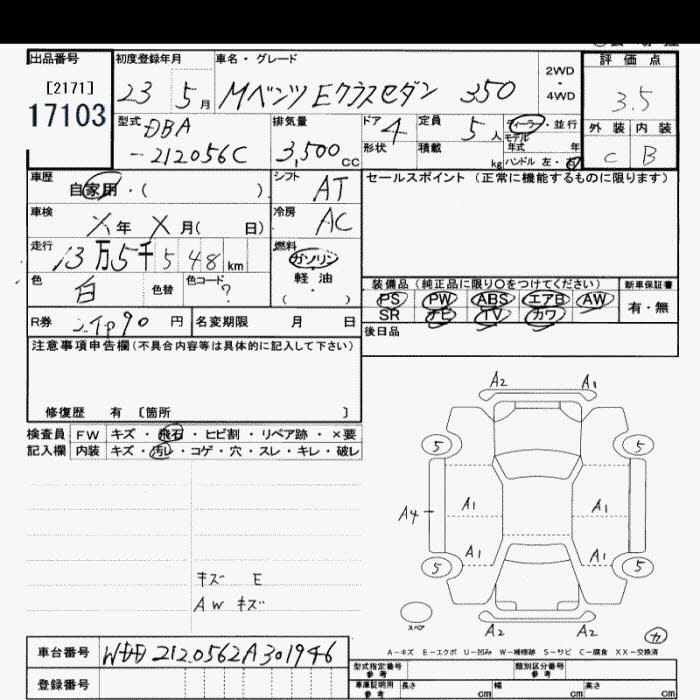 出品番号
[2171]
17103
初度登録年月
23 5 月
車名・グレード
Mベンツ Eクラスセダン 350
2WD
4WD
評価点
3.5
外装 内装
C B
型式 DBA
-212056C
排気量
3,500 CC
ドア 4
形状
定員 5 人
積載 kg
ディーラー・並行
モデル
年式 年
ハンドル 左・右
車歴
自家用・( )
シフト AT
セールスポイント (正常に機能するものに限ります)
車検
X 年 X 月( 日)
冷房 AC
走行
13 万 5 千 5 4 8 km
燃料
ガソリン
軽・油
( )
色 白
色替
色コード ?
装備品 (純正品に限り○をつけてください)
新車保証書
PS PW ABS エアB AW
SR ナビ TV カワ
有・無
R券 円
名変期限 月 日
後日品
注意事項申告欄 (不具合内容等は具体的に記入して下さい)
修復歴 有 [箇所 ]
検査員 FW キズ・飛石・ヒビ割・リペア跡・×要
記入欄 内装 キズ・汚れ・コゲ・穴・スレ・キレ・破レ
A2 A1
5 5
A1 A1
A4
A1 A1
5 5
キズ E
AW キズ
スペア
A2 A2
カ
A-キズ E-エクボ U-凹み W-補修跡 S-サビ C-腐食 XX-交換済
車台番号 WDD2120562A301946
型式指定番号
参考
類別区分番号
参考
登録番号
車庫証明用
参考
長さ cm 幅 cm 高さ cm